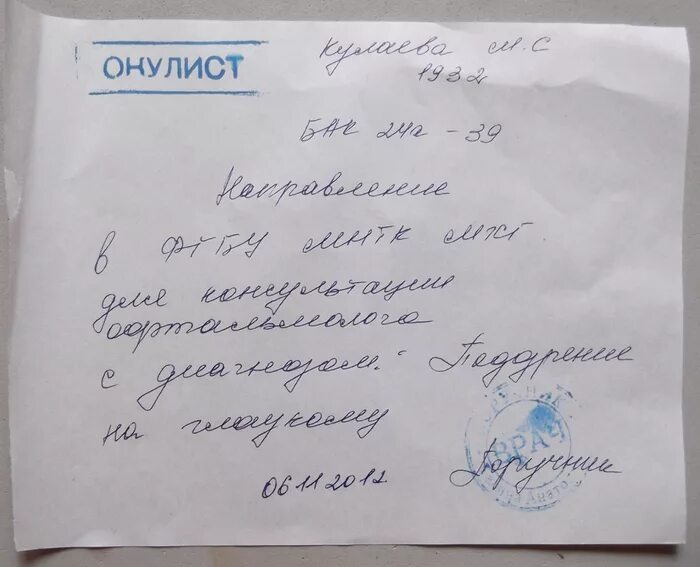 ОКУЛИСТ
Кулаева М.С
1932
БАК 24а - 39
Направление
в ФГБУ МНТК МХГ
для консультации
офтальмолога
с диагнозом: " Подозрение
на глаукому
ВРАЧ
06.11.2012
Поручник